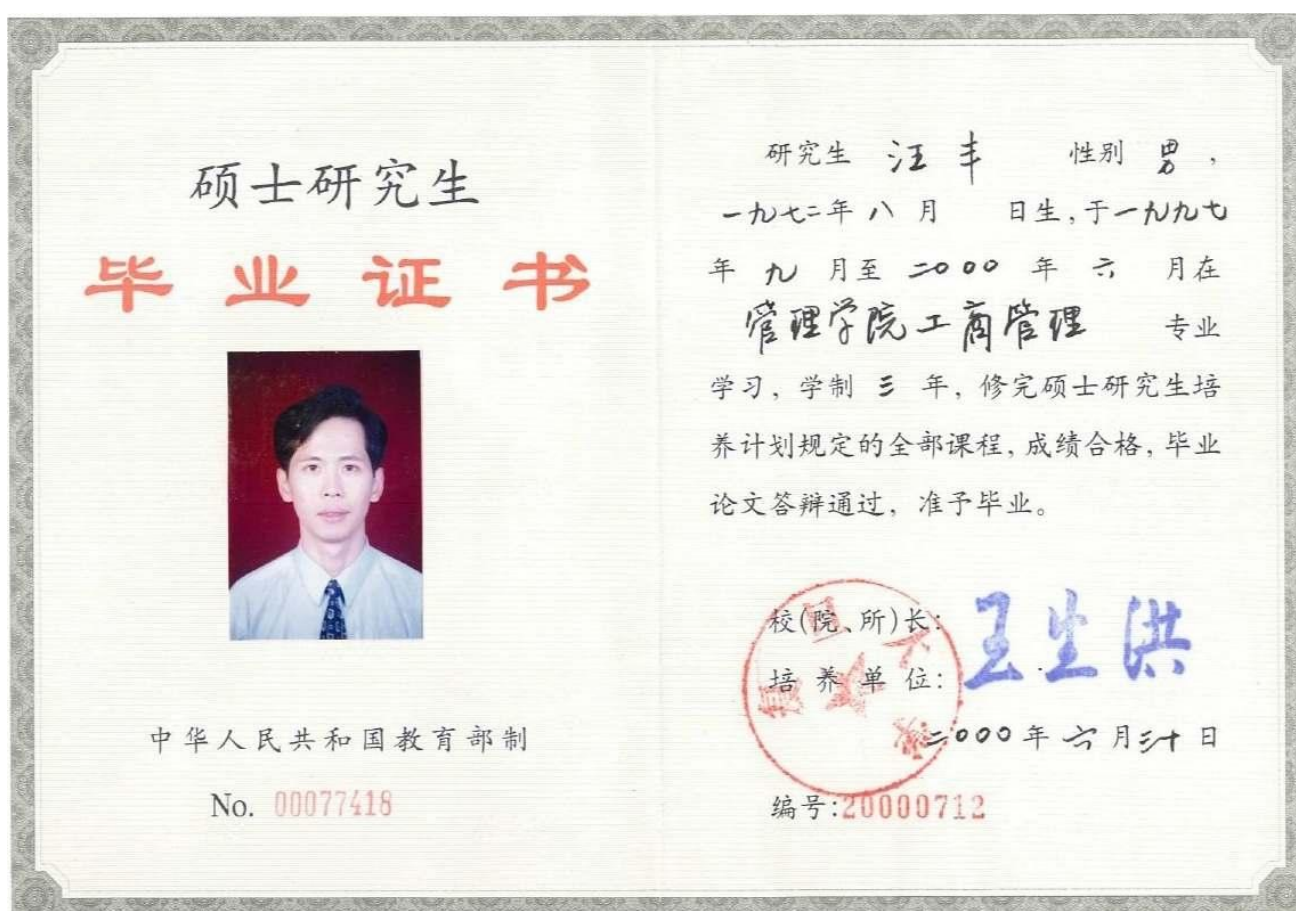 硕士研究生
毕业证书
中华人民共和国教育部制
No. 00077418
研究生 汪丰 性别 男，
一九七二年八月 日生，于一九九七
年 九 月至 二000 年 六 月在
管理学院工商管理 专业
学习，学制 三 年，修完硕士研究生培
养计划规定的全部课程，成绩合格，毕业
论文答辩通过，准予毕业。
校(院、所)长：王生洪
培养单位：
复旦大学
二000年六月三十日
编号:20000712